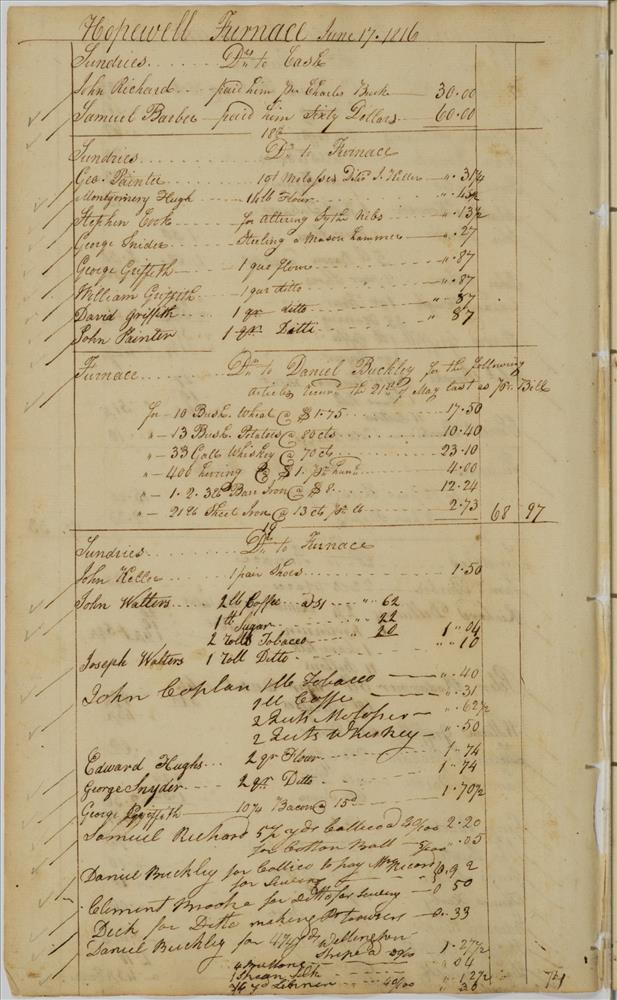 Hopewell Furnace June 17. 1816
Sundries . . . . . . Drs to Cash
John Richard . . . paid him Per Charles Buck — 30.00
Samuel Barber — paid him Sixty Dollars — 60.00
18th
Sundries . . . . . . Dr to Furnace
Geo. Painter . . . Molasses Ditto J. Heller — " . 31 1/4
Montgomery Hugh — 14 lb Flour . . . " . 43 3/4
Stephen Cook — for Altering Sythe Nibs — " . 13 1/2
George Snider — Steeling a Mason Hammer — " . 27
George Griffith — 1 quar flour . . . " . 87
William Griffith . . . 1 quar ditto . . . " . 87
David Griffith — 1 qr ditto . . . " 87
John Painter 1 qr Ditto . . . " 87
Furnace . . . . . . Dr to Daniel Buckley for the following
articles the 21st of May last as Per Bill
for — 10 Bush. Wheat @ $1.75 . . . 17.50
" — 13 Bush. Potatoes @ 80 cts . . . 10.40
" — 33 Galls Whiskey @ 70 cts . . . 23.10
" — 400 herring @ $1. pr hund . . . 4.00
" — 1. 2. 3 lb Barr Iron @ $8 . . . 12.24
" — 21 lb Sheet Iron @ 13 cts pr lb . . . 2.73 68 97
19
Sundries . . . . . . Drs to Furnace
John Heller . . . 1 pair Shoes . . . 1.50
John Walters . . . 2 lb Coffee a 31 . . . " 62
1 lb Sugar . . . " 22
2 Rolls Tobacco . . . " 20 1 " 04
Joseph Walters 1 Roll Ditto . . . " " 10
John Coplan 1 lb Tobacco — " . 40
1 lb Coffe — " . 31
2 Quts Molasses — " . 62 1/2
2 Quts Whiskey — " . 50
Edward Hughs . . . 2 qr Flour . . . 1 " 74
George Snyder . . . 2 qr Ditto . . . 1 " 74
George Griffith — 10 1/4 Bacon @ 15d . . . 1.70 1/2
Samuel Richard 5 1/2 yds Callico a 40/100 2.20
for Cotton Ball — 5/100 " . 05
Daniel Buckley for Callico to pay McRicord
for Sewing 0.92
Clement Brooke for ditto for sewing — 0 50
Dick for Ditto making Pr trousers — 0.33
Daniel Buckley for 4 1/4 yds Wellington
Stripe a 30/100 1.27 1/2
4 Buttons . . . " 04
1 Skean Silk . . . " 12 1/2
3/4 yd Lennen . . . 40/100 " 30